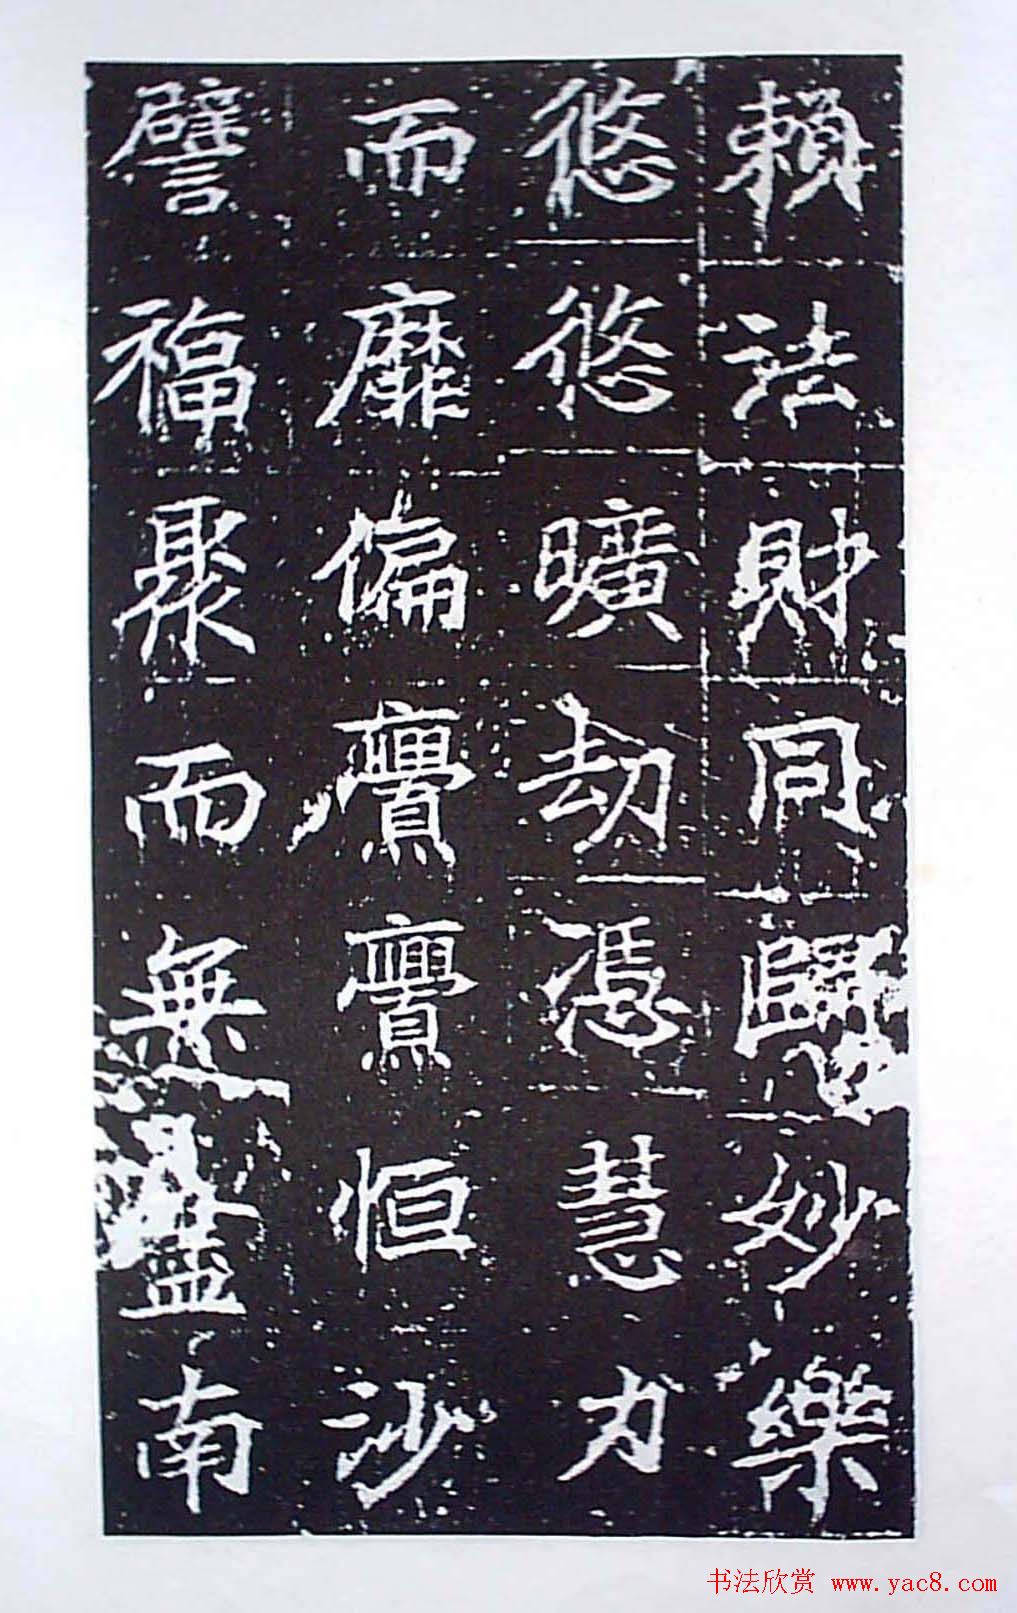 賴法財同歸妙樂
悠悠曠劫憑慧力
而靡偏亹亹恒沙
譬福聚而無盡南
书法欣赏 www.yac8.com